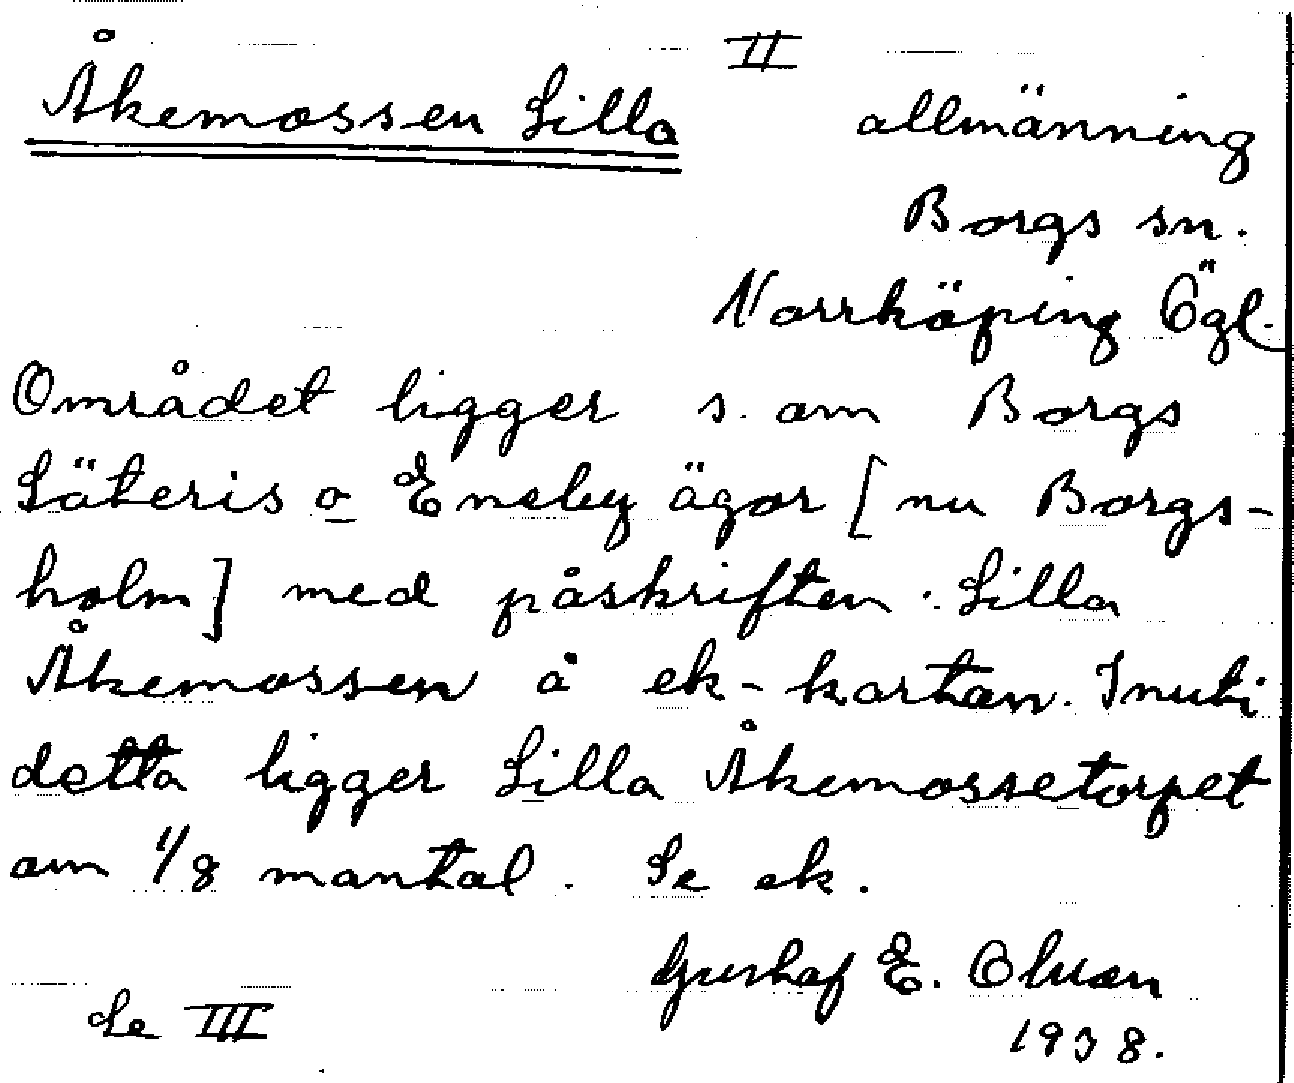 II
Åkemossen Lilla
allmänning
Borgs sn.
Norrköping Ögl.
Området ligger s. om Borgs
Säteris o Eneby ägor [nu Borgs-
holm] med påskriften: Lilla
Åkemossen å ek-kartan. Inuti
detta ligger Lilla Åkemossetorpet
om 1/8 mantal. Se ek.
Gustaf E. Olsson
1938.
Se III